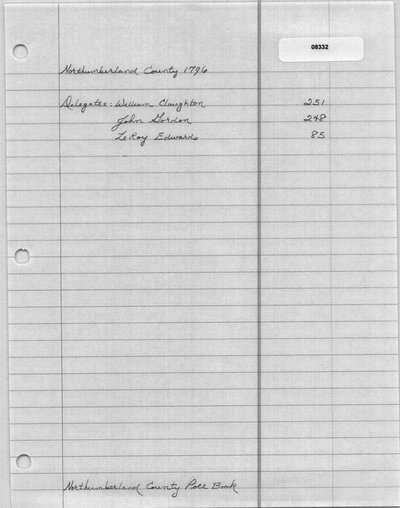 08332
Northumberland County 1796
Delegates: William Claughton 251
John Gordon 248
LeRoy Edwards 85
Northumberland County Poll Book